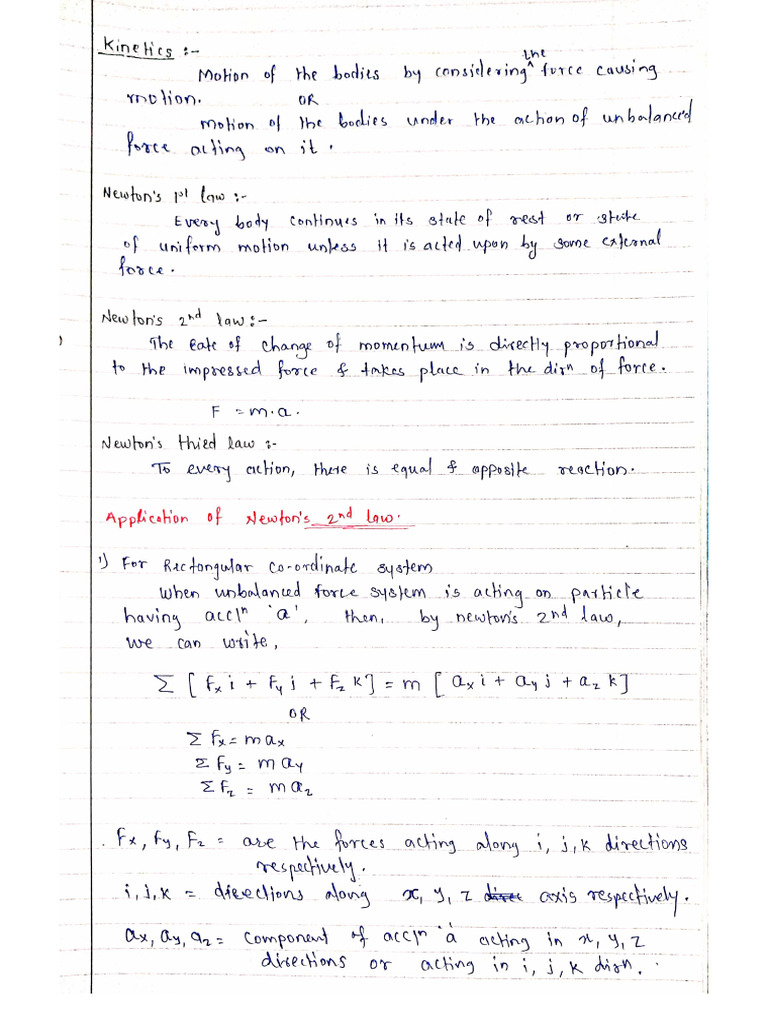 Kinetics :-
the
Motion of the bodies by considering ^ force causing
motion. OR
Motion of the bodies under the action of unbalanced
force acting on it.
Newton's 1st law :-
Every body continues in its state of rest or state
of uniform motion unless it is acted upon by some external
force.
Newton's 2nd law :-
The rate of change of momentum is directly proportional
to the impressed force & takes place in the dirn of force.
F = m.a.
Newton's third law :-
To every action, there is equal & opposite reaction.
Application of Newton's 2nd law.
1) For Rectangular co-ordinate system
When unbalanced force system is acting on particle
having accln 'a', then, by newton's 2nd law,
we can write,
Σ [ Fx i + Fy j + Fz k ] = m [ ax i + ay j + az k ]
OR
Σ Fx = m ax
Σ Fy = m ay
Σ Fz = m az
. Fx, Fy, Fz = are the forces acting along i, j, k directions
respectively.
i, j, k = directions along x, y, z axis respectively.
ax, ay, az = component of accln 'a' acting in x, y, z
directions or acting in i, j, k dirn.